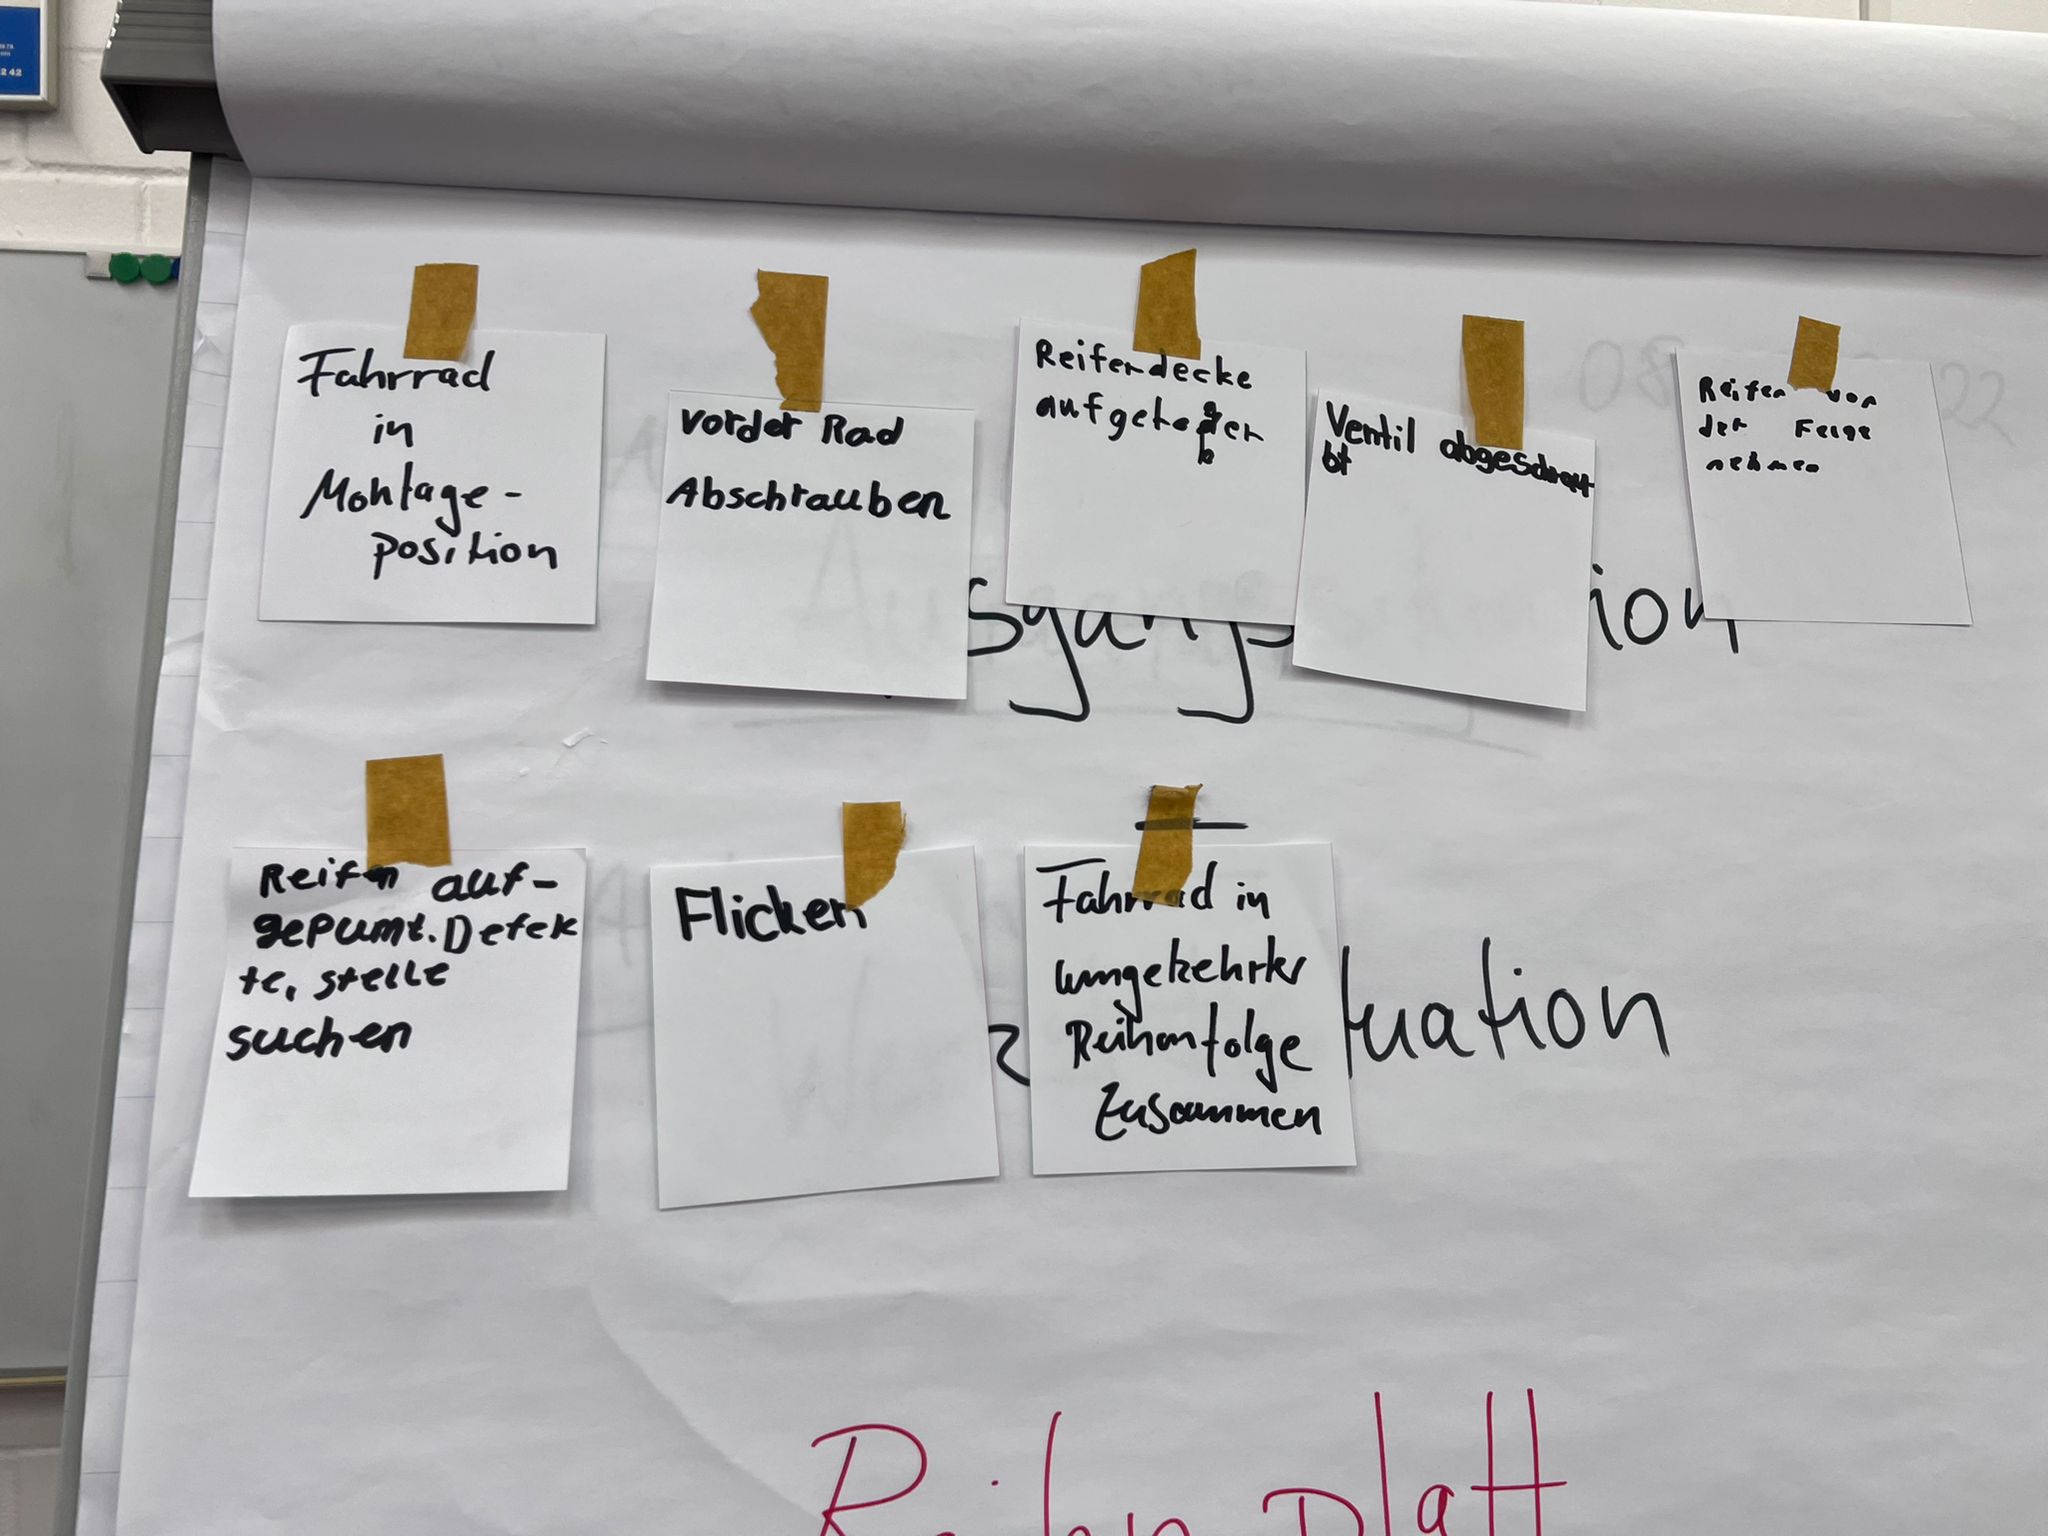 2 42
Fahrrad
in
Montage-
position
vorder Rad
Abschrauben
Reifendecke
Ventil abgeschrau
bt
Reifen von
der Felge
nehmen
Reifen auf-
gepumt. Defek
te, stelle
suchen
Flicken
Fahrrad in
umgekehrter
Reihenfolge
Zusammen
Reifen Platt